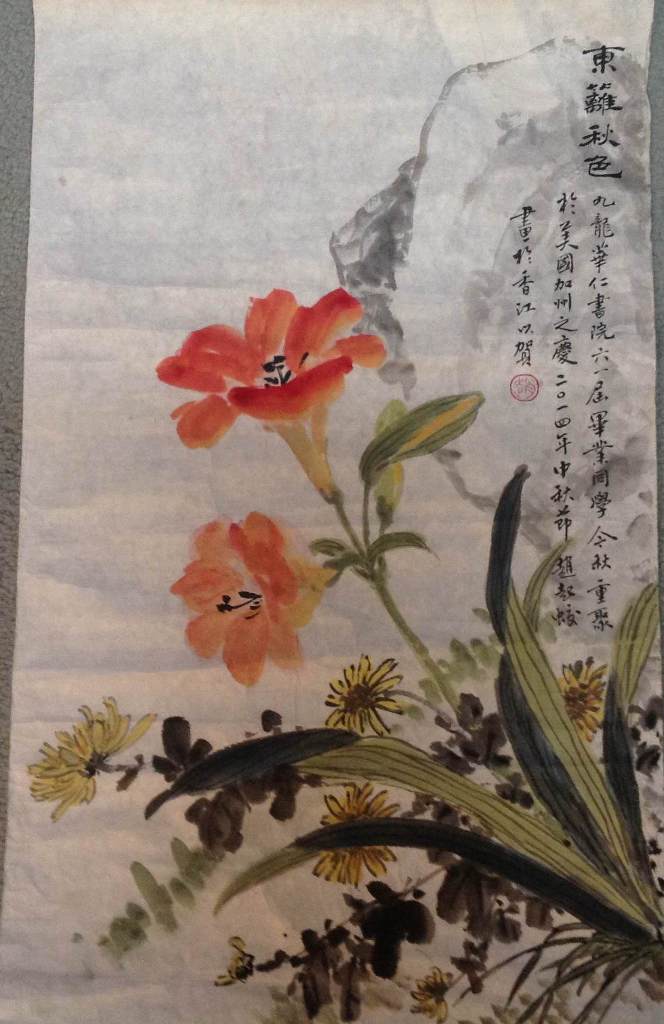 東籬秋色
九龍華仁書院六一屆畢業同學今秋重聚
於美國加州之慶二〇一四年中秋節趙
畫於香江以賀